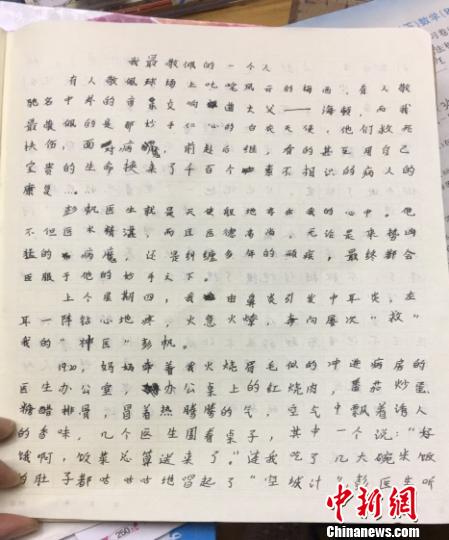 我最敬佩的一个人
有人敬佩球场上叱咤风云的梅西,有人敬
驰名中外的音乐交响曲之父——海顿,而我
最敬佩的是那妙手仁心的白衣天使,他们救死
扶伤,面对病魔,前赴后继,有的甚至用自己
宝贵的生命换来了千百个素不相识的病人的
康复。
彭帆医生就是天使般地存在我的心中。他
不但医术精湛,而且医德高尚,无论是来势凶
猛的病魔,还是纠缠多年的顽疾,最终都会
臣服于他的妙手之下。
上个星期四,我由鼻炎引发中耳炎,左
耳一阵钻心地疼,火急火燎,奔向屡次"救"
我的"神医"彭帆。
19:30,妈妈牵着我火烧眉毛似的冲进病房的
医生办公室,办公桌上的红烧肉,番茄炒蛋
糖醋排骨,冒着热腾腾的气,空气中飘着诱人
的香味,几个医生围着桌子,其中一个说:"好
饿啊,饭菜总算送来了。"连我吃了几大碗米饭
的肚子都咕咕地唱起了"空城计"彭医生听
中新网
Chinanews.com
260
数学